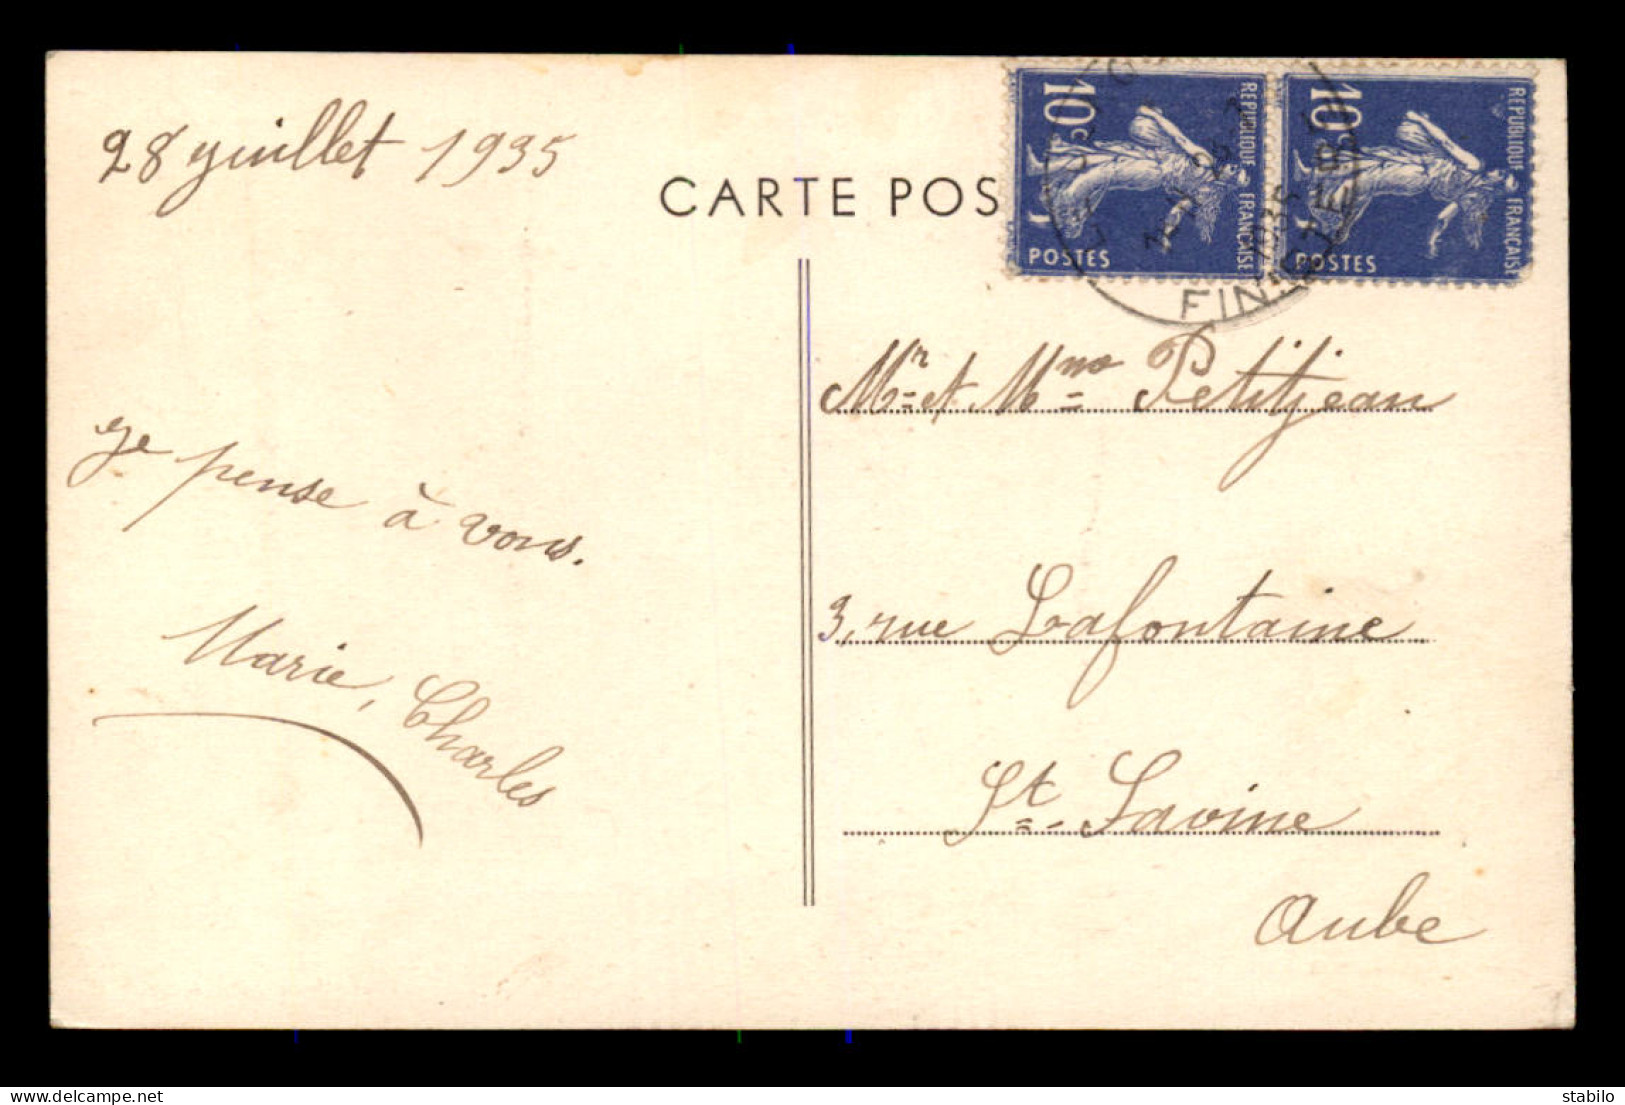 28 juillet 1935
CARTE POS
10c
REPUBLIQUE FRANÇAISE
POSTES
10
REPUBLIQUE FRANÇAISE
POSTES
FIN
Je pense à vous.
Marie, Charles
Mr et Mme Petitjean
3, rue Lafontaine
St-Savine
Aube
www.delcampe.net
stabilo